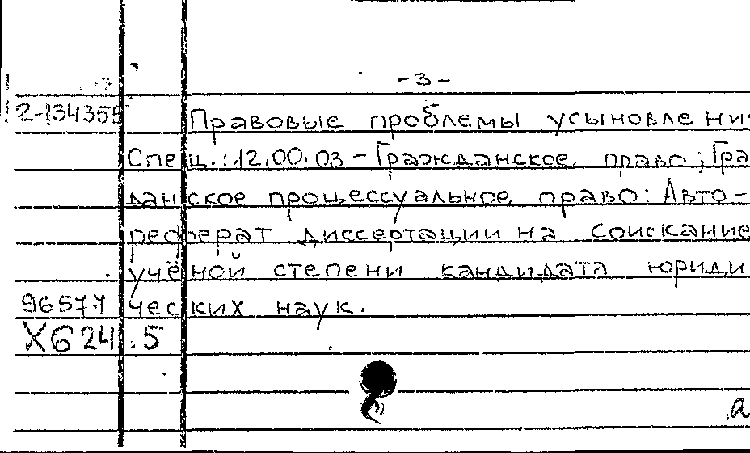 -3-
2-134355 Правовые проблемы усыновлени
Спец.: 12.00.03 - Гражданское право; Гра
данское процессуальное право: Авто-
реферат диссертации на соискание
учёной степени кандидата юриди
96577 ческих наук.
Х624.5
а